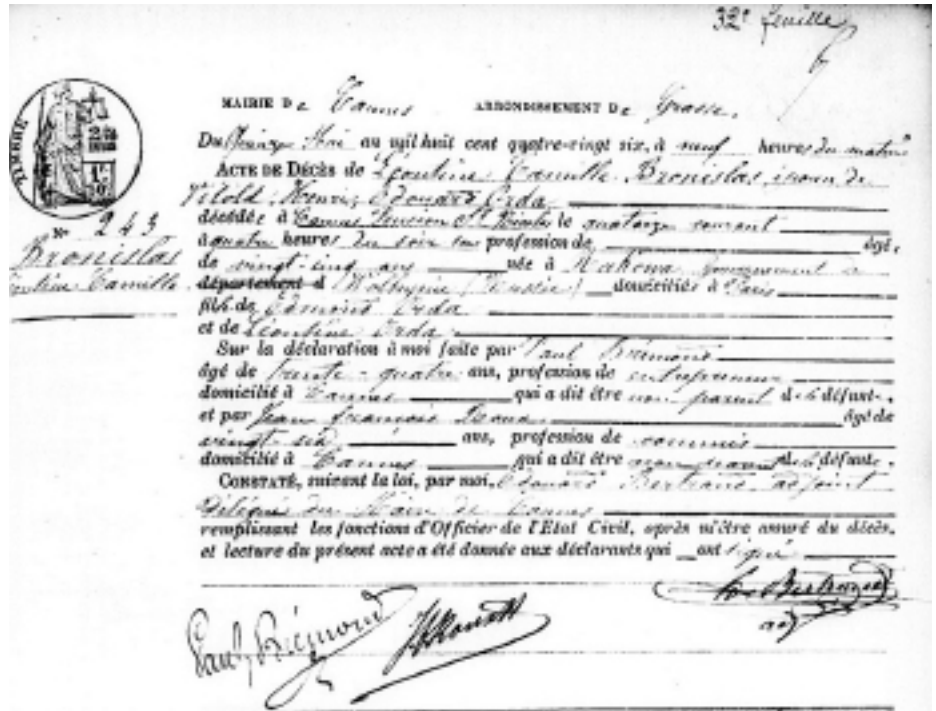 32e feuille
MAIRIE De Cannes ARRONDISSEMENT De Grasse.
Du Quinze Mai an mil huit cent quatre-vingt six, à neuf heures du matin
ACTE DE DÉCÈS de Léontine Camille Bronislas, épouse de
Vitold Henri Edouard Orda
décédée à Cannes Pension St le quatorze courant
à quatre heures du soir profession de âgé.
de vingt-cinq ans née à Gouvernement de
département d (Russie) domiciliée à Paris
fils de Edmond Orda
et de Léontine Orda
Sur la déclaration à moi faite par Paul
âgé de trente-quatre ans, profession de entrepreneur
domicilié à Cannes qui a dit être non parent de la défunte.
et par Jean François âgé de
vingt six ans, profession de commis
domicilié à Cannes qui a dit être non parent de la défunte.
CONSTATÉ, suivant la loi, par moi, Edouard Bertrand adjoint
délégué du Maire de Cannes
remplissant les fonctions d'Officier de l'Etat Civil, après m'être assuré du décès,
et lecture du présent acte a été donnée aux déclarants qui ont signé
TIMBRE
No 243
Bronislas
Léontine Camille
Paul